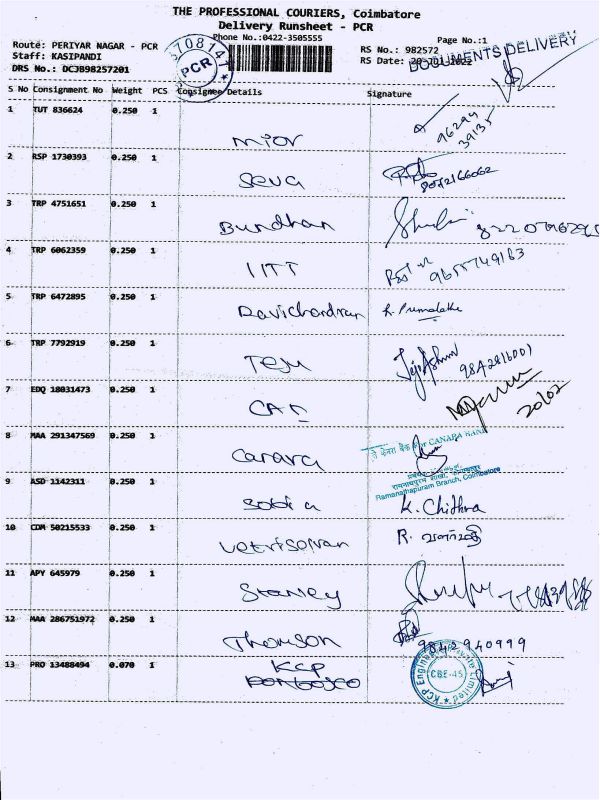 THE PROFESSIONAL COURIERS, Coimbatore
Delivery Runsheet - PCR
Phone No.:0422-3505555
Page No.:1
Route: PERIYAR NAGAR - PCR
RS No.: 982572
Staff: KASIPANDI
RS Date:
DOCUMENTS DELIVERY
DRS No.: DCJB98257201
3708147
PCR
S No Consignment No Weight PCS Consignee Details Signature
1 TUT 836624 0.250 1 Mior 96299 39135
2 RSP 1730393 0.250 1 Seva
3 TRP 4751651 0.250 1 Bundhan
4 TRP 6062359 0.250 1 IITT 9655749183
5 TRP 6472895 0.250 1 Ravichandran K. Premalatha
6 TRP 7792919 0.250 1 Teju
7 EDQ 18031473 0.250 1 20/02
8 MAA 291347569 0.250 1 Canara
For CANARA BANK
Ramanathapuram Branch, Coimbatore
9 ASD 1142311 0.250 1 Sobia K. Chithra
10 CDM 50215533 0.250 1 Vetriselvan R.
11 APY 645979 0.250 1 Stanley
12 MAA 286751972 0.250 1 Thomson 9842940999
13 PRO 13488494 0.070 1 KCP
KCP Engineers Private Limited
CBE-45